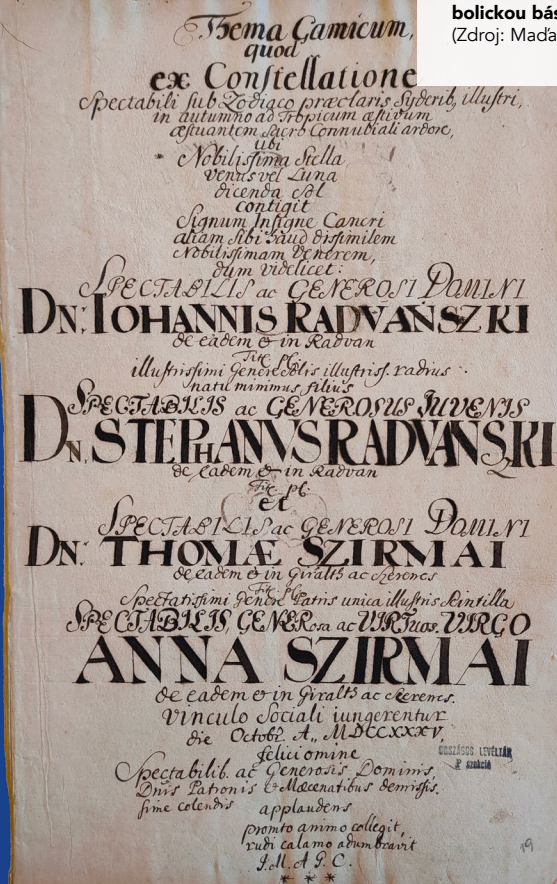 bolickou bás
(Zdroj: Maďa
Thema Gamicum,
quod
ex Constellatione
Spectabili sub Zodiaco præclaris Syderib, illustri,
in autumno ad Tropicum æstivum
æstuantem Sacro Connubiali ardore,
ubi
Nobilissima Stella
Venus vel Luna
dicenda Sol
contigit
Signum Insigne Cancri
aliam sibi haud dissimilem
Nobilissimam Venerem,
dum videlicet:
SPECTABILIS ac GENEROSI DOMINI
DN: IOHANNIS RADVANSZKI
de eadem & in Radvan
Tit: pl:
illustrissimi genere Solis illustriss. radius
natu minimus filius
SPECTABILIS ac GENEROSUS JUVENIS
DN. STEPHANVS RADVANSZKI
de eadem & in Radvan
Tit: pl:
et
SPECTABILIS ac GENEROSI DOMINI
DN: THOMÆ SZIRMAI
de eadem & in Giralth ac Szerencs
Tit: pl:
Spectatissimi genere Patris unica illustris Scintilla
SPECTABILIS, GENERosa ac VIRTuos. VIRGO
ANNA SZIRMAI
de eadem & in Giralth ac Szerencs.
Vinculo Sociali iungerentur
die Octobr. A., MDCCXXXV,
felici omine
Spectabilib. ac Generosis Dominis,
Dnis Patronis & Mæcenatibus demissis.
sime colendis applaudens
promto animo collegit,
rudi calamo adumbravit
J. M. A G. C.
* * *
ORSZÁGOS LEVÉLTÁR
P szekció
19